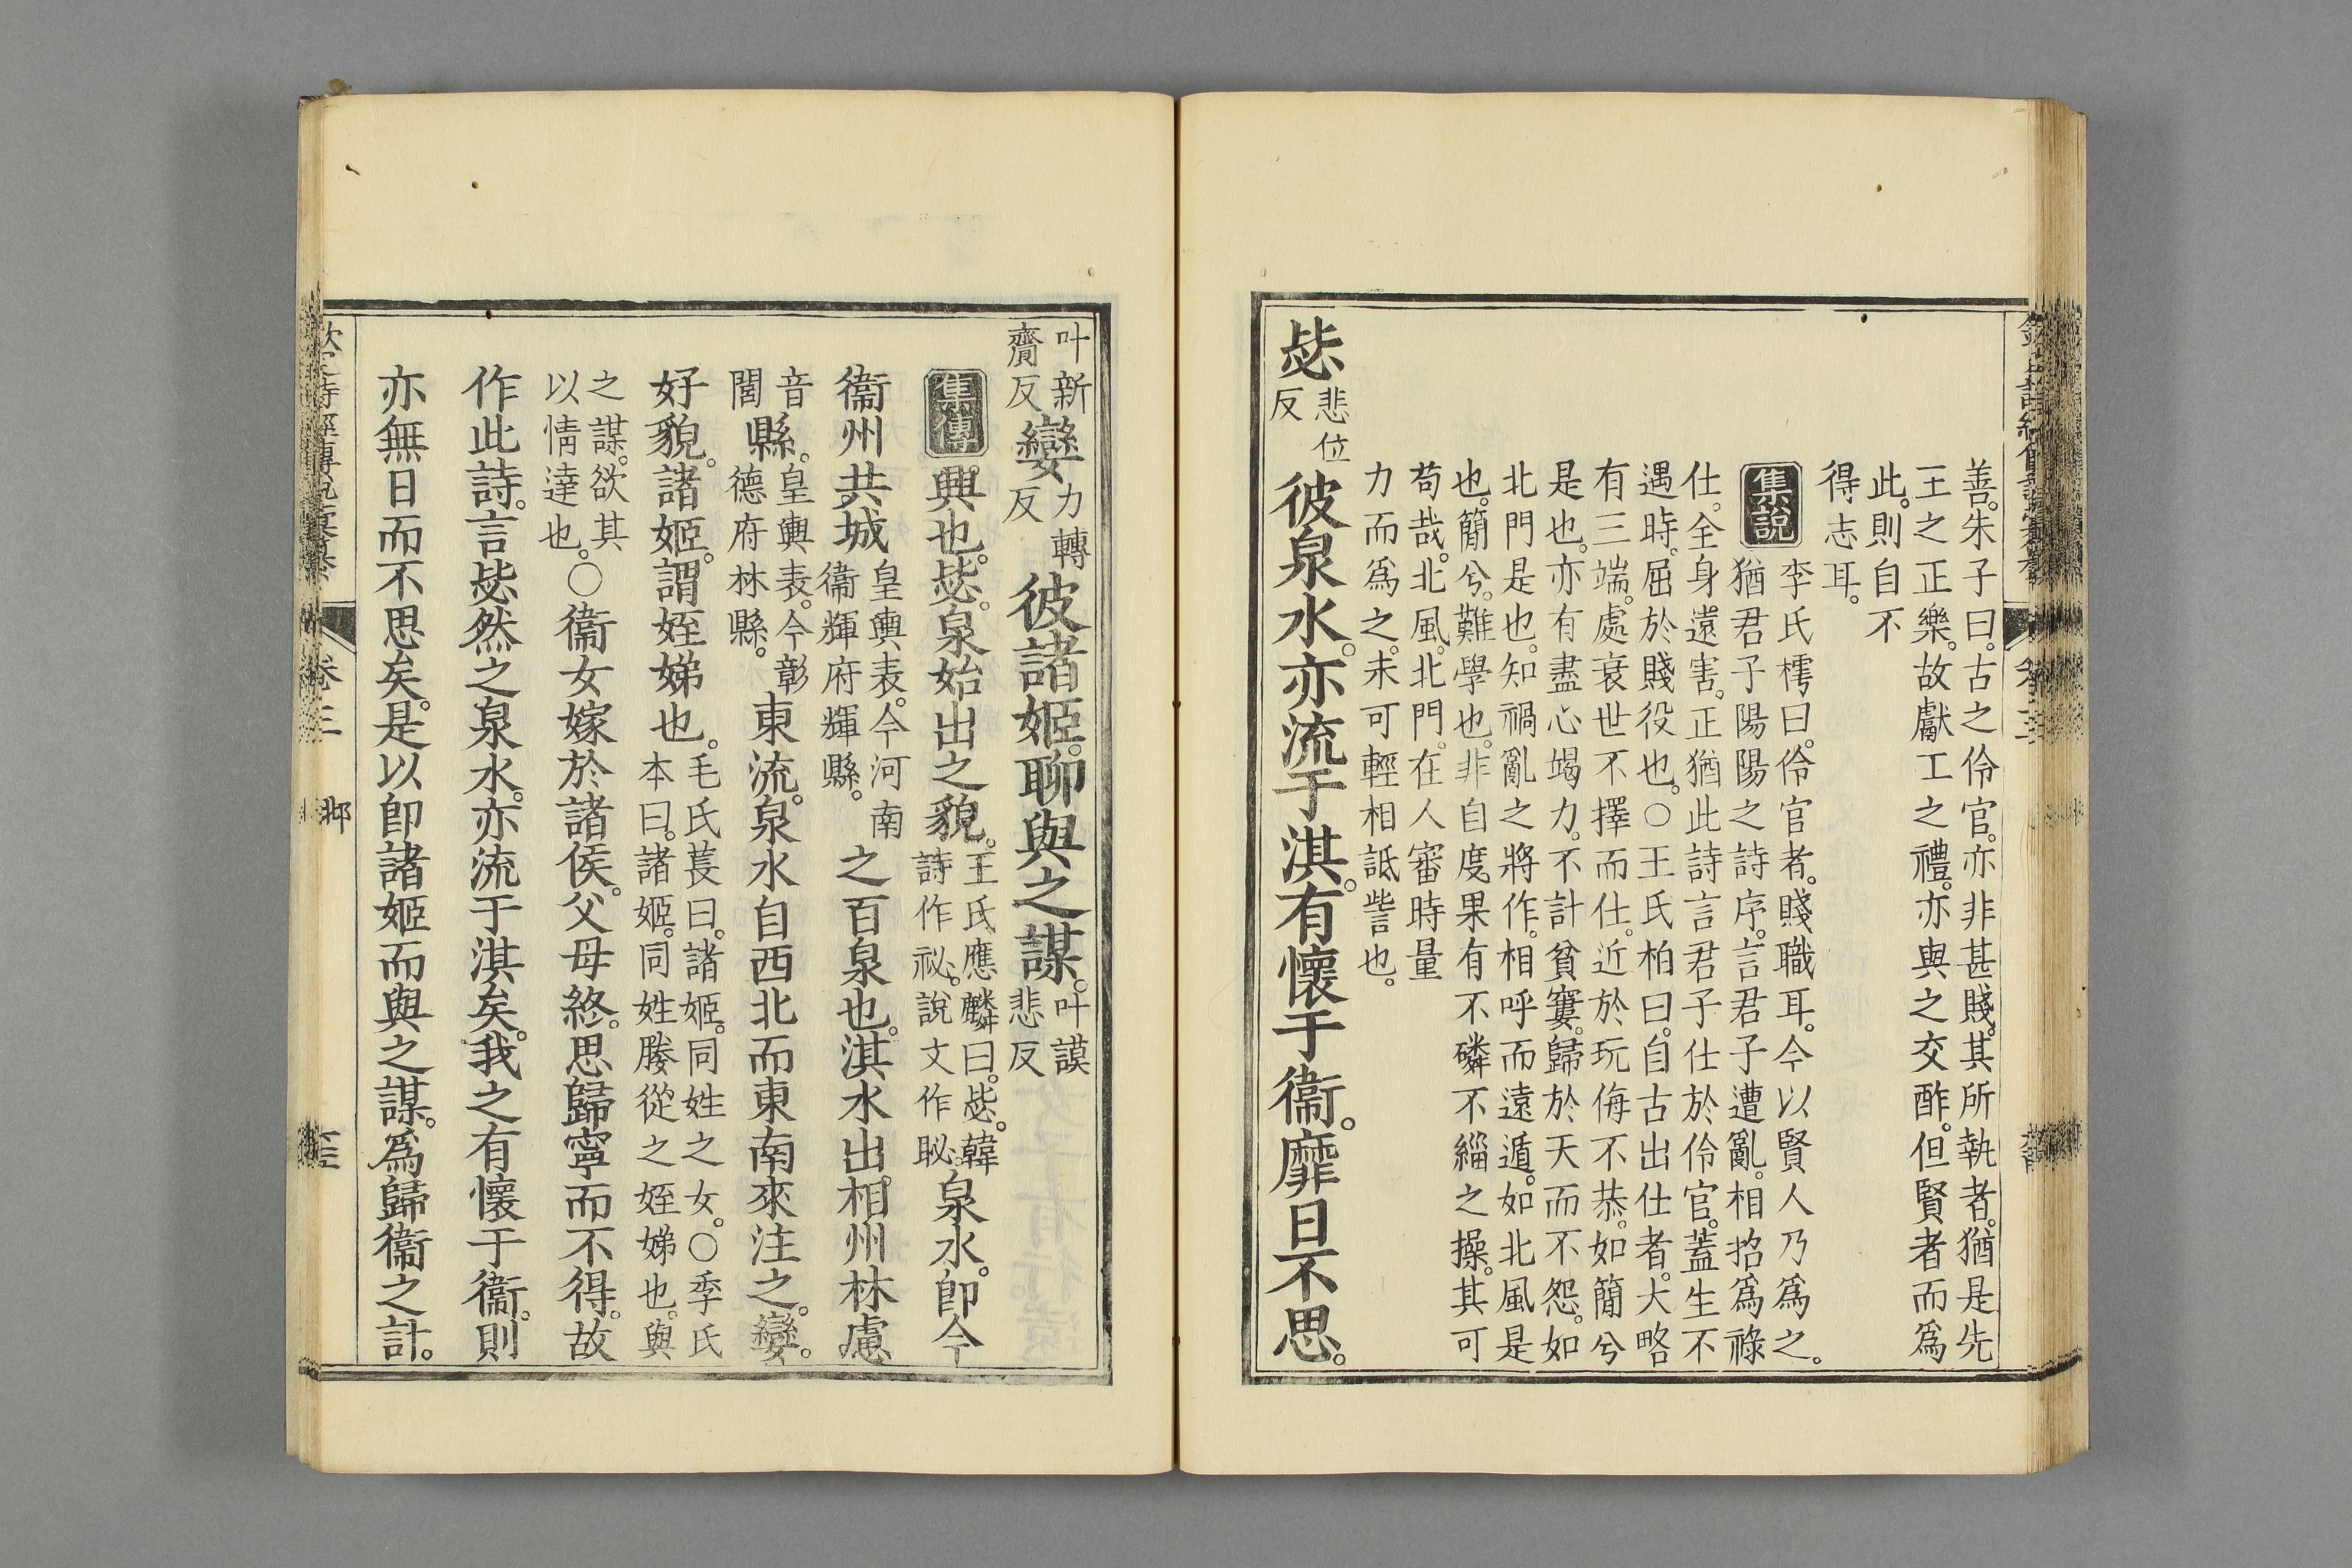 善。朱子曰。古之伶官。亦非甚賤。其所執者。猶是先
王之正樂。故獻工之禮。亦與之交酢。但賢者而爲
此。則自不
得志耳。
集說 李氏樗曰。伶官者。賤職耳。今以賢人乃爲之。
猶君子陽陽之詩序。言君子遭亂。相招爲祿
仕。全身遠害。正猶此詩言君子仕於伶官。蓋生不
遇時。屈於賤役也。○王氏柏曰。自古出仕者。大略
有三端。處衰世不擇而仕。近於玩侮不恭。如簡兮
是也。亦有盡心竭力。不計貧窶。歸於天而不怨。如
北門是也。知禍亂之將作。相呼而遠遁。如北風是
也。簡兮。難學也。非自度果有不磷不緇之操。其可
苟哉。北風。北門。在人審時量
力而爲之。未可輕相詆訾也。
毖悲位反彼泉水。亦流于淇。有懷于衞。靡日不思。
叶新齎反孌力轉反彼諸姬。聊與之謀。叶謨悲反
集傳 興也。毖。泉始出之貌。王氏應麟曰。毖。韓詩作祕。說文作䀣。泉水。卽今
衞州共城皇輿表。今河南衞輝府輝縣。之百泉也。淇水出。相州林慮
音閭縣。皇輿表。今彰德府林縣。東流。泉水自西北而東南來注之。孌。
好貌。諸姬。謂姪娣也。毛氏萇曰。諸姬。同姓之女。○季氏本曰。諸姬。同姓媵從之姪娣也。與
之謀。欲其以情達也。○衞女嫁於諸侯。父母終。思歸寧而不得。故
作此詩。言毖然之泉水。亦流于淇矣。我之有懷于衞。則
亦無日而不思矣。是以卽諸姬而與之謀。爲歸衞之計。
卷三 邶